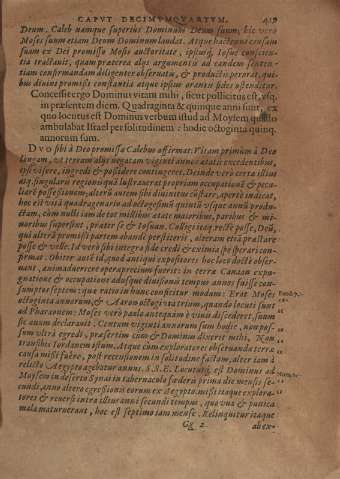 CAPVT DECIMVMQVARTVM. 459
Deum, Caleb namque superius Dominum Deum suum; hic vero
Moses suum etiam Deum Dominum laudat. Atque hactenus causam
suam ex Dei promisso Mosis auctoritate,
tia tractauit, quam praeterea aliis argumentis ad eandem senten-
tiam confirmandam diligenter obseruatis, & productis perorat, qui-
bus diuini promissi constantia atque ipsius orantis fides ostenditur.
Concessit ergo Dominus vitam mihi, sicut pollicitus est, vsq.
in praesentem diem. Quadraginta & quinque anni sunt, ex
quo locutus est Dominus verbum istud ad Moysem quando
ambulabat Israel per solitudinem: hodie octoginta quinq.
annorum sum.
DVO sibi à Deo promissa Calebus affirmat: Vitam primum à Deo
longam, vt
ipsi visere, ingredi & possidere contingeret. Deinde vero certa illius
atq. singularis regionis quam lustrauerat propriam occupationem & pecu-
liare possessionem;
hoc est vitam quadragenario ad octogesimum quintum vsque annum produ-
ctam, cum nulli iam de tot millibus aetate maioribus, paribus & mi-
noribus superssint, praeter se & Iosuam. Colligit itaq. recte posse, Deum,
qui alteram promissi partem abunde perstiterit, alteram etiam praestare
posse & velle. Id vero sibi integra fide credi & eximia spe sperari con-
firmat. Obiter autem id, quod antiqui expositores hoc loco docte obser-
uant, animaduertere operae precium fuerit: in terrae Canaan expu-
gnatione & occupatione adusque diuisionis tempus annos fuisse con-
sumptos septem: quae ratio in hunc conficitur modum: Erat Moses
octoginta annorum, & Aaron octoginta trium, quando locuti sunt
ad Pharaonem: Moses vero paulo antequam è vita discederet, suum
sic aeuum declarauit. Centum viginti annorum sum hodie, non pos-
sum vltra egredi, praesertim cum & Dominus dixerit mihi, Non
transibis Iordanem istum. Atque cum exploratores obseruandae terrae
causa missi fuere, post recensionem in solitudine factam, alter iam à
relicto Aegypto agebatur annus. S.S.E. Locutusq. est Dominus ad
Moysem in deserto Synai in tabernaculo foederis prima die mensis se-
cundi, anno altero egressionis eorum ex Aegypto. missi itaque explora-
tores & reuersi intra illius anni secundi tempus, quo vua & punica
mala maturuerant, hoc est septimo iam mense. Relinquitur itaque
Gg 2 ab ex-